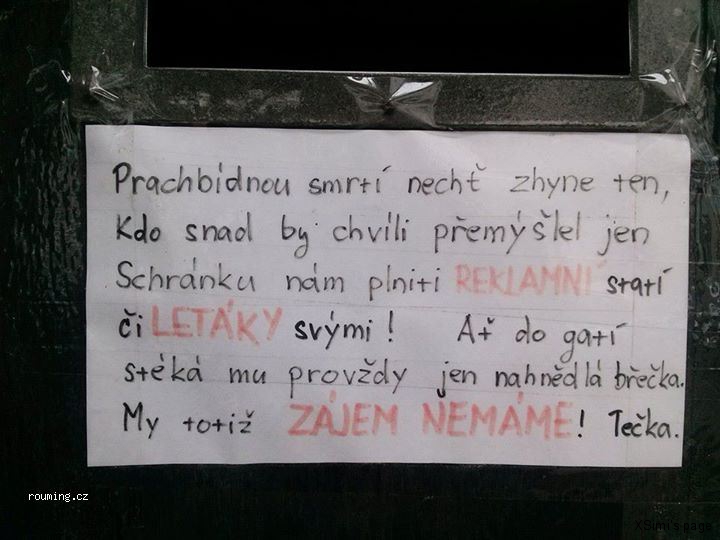 Prachbídnou smrtí nechť zhyne ten,
Kdo snad by chvíli přemýšlel jen
Schránku nám plniti REKLAMNÍ statí
či LETÁKY svými! Ať do gatí
stéká mu provždy jen nahnědlá břečka.
My totiž ZÁJEM NEMÁME! Tečka.
rouming.cz